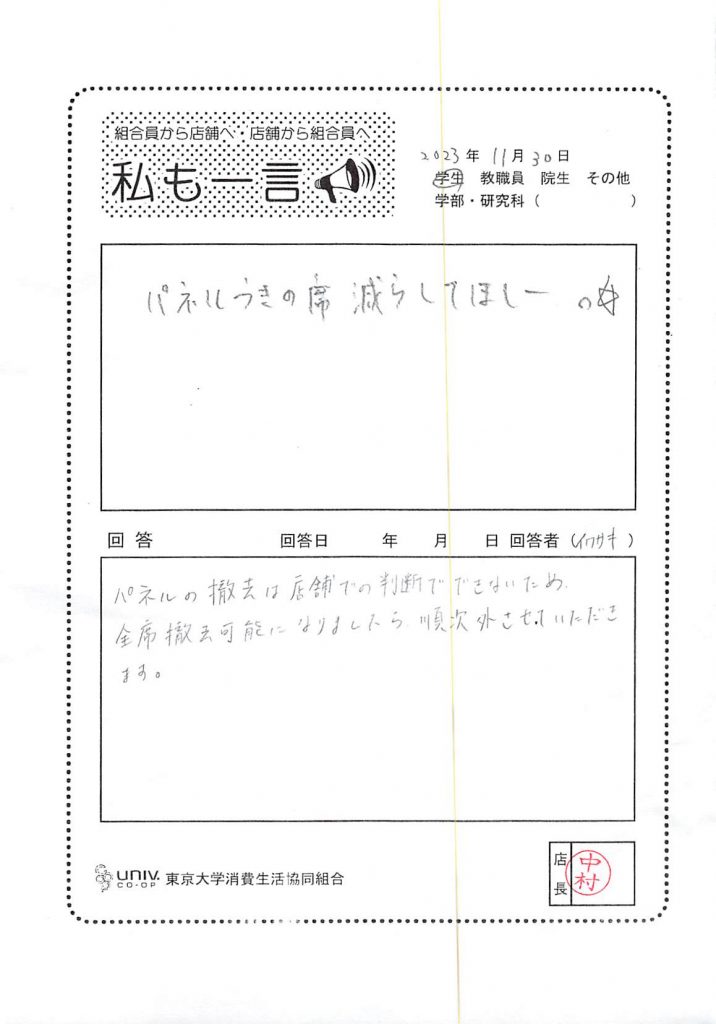 組合員から店舗へ・店舗から組合員へ
私も一言
2023年 11月 30日
学生 教職員 院生 その他
学部・研究科( )
パネルつきの席 減らしてほしー の
回答 回答日 年 月 日 回答者(イワサキ)
パネルの撤去は店舗での判断でできないため、
全席撤去可能になりましたら、順次外させていただき
ます。
UNIV. CO-OP 東京大学消費生活協同組合
店長
中村